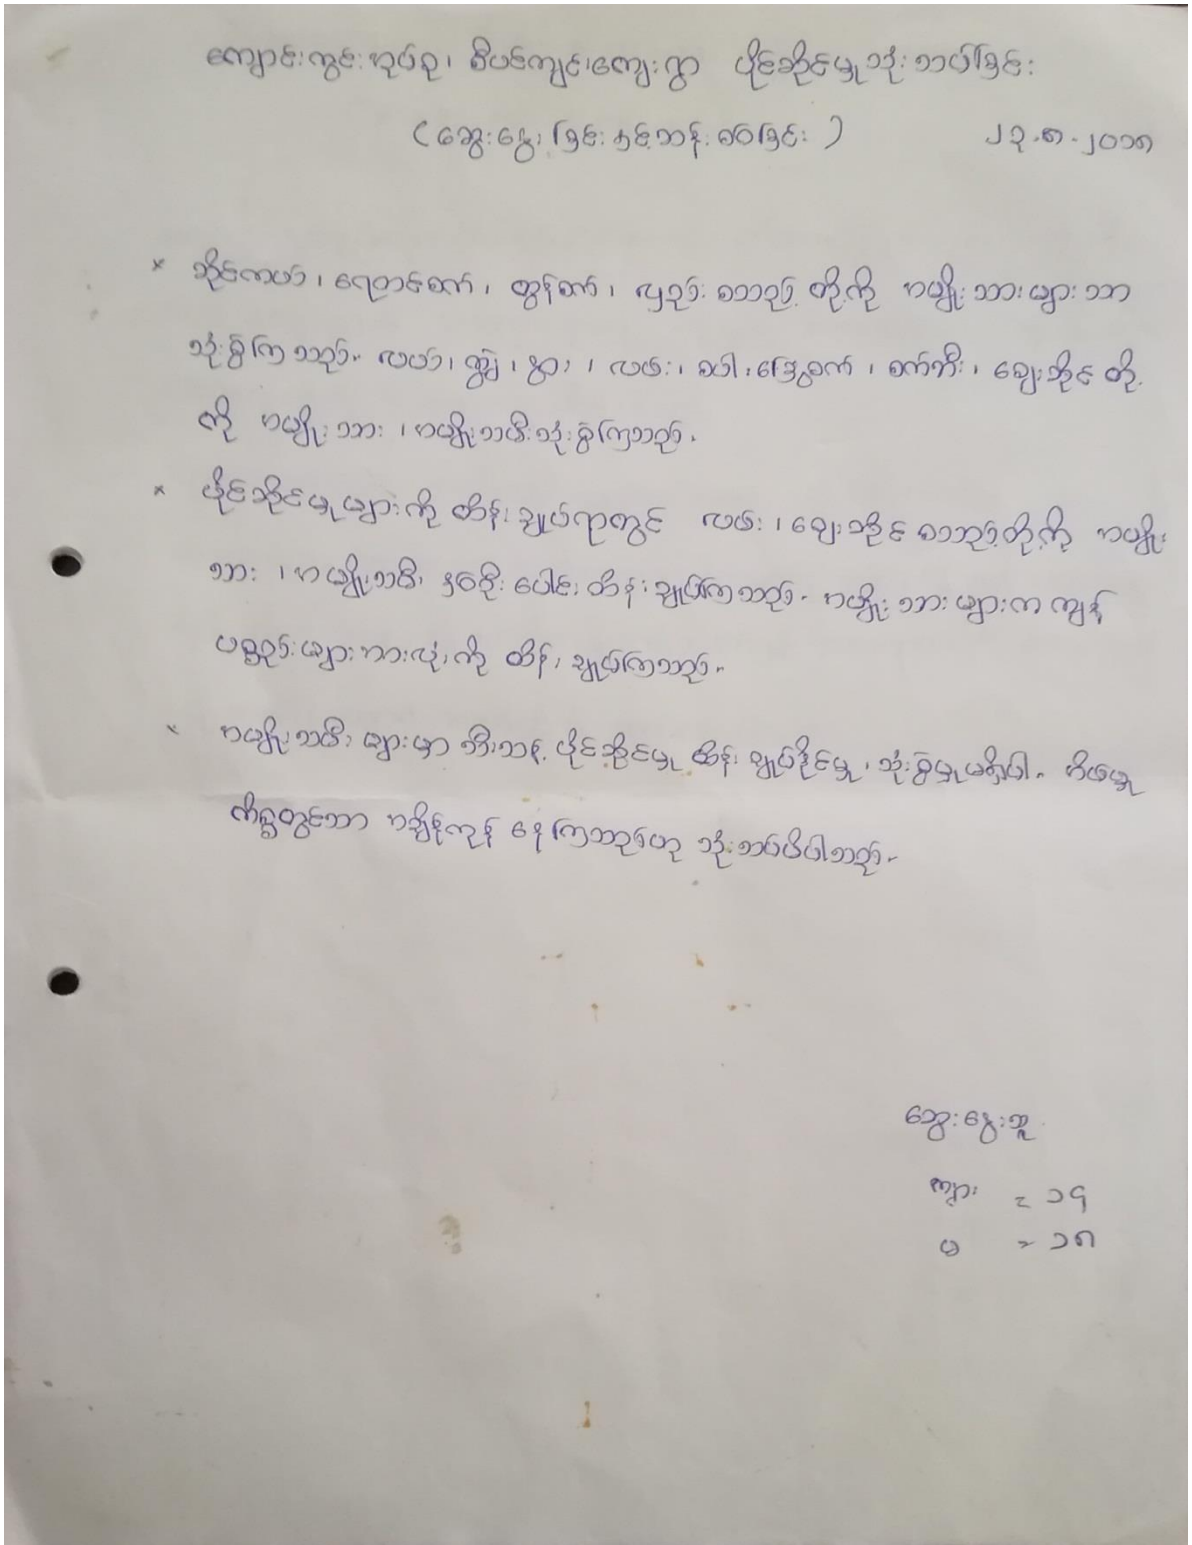 ကျောင်းကွင်းအုပ်စု၊ စီပင်ကျင်းကျေးရွာ ပိုင်ဆိုင်မှုသုံးသပ်ခြင်း
(ဆွေးနွေးခြင်းနှင့်ဆန်းစစ်ခြင်း) ၂၃.၈.၂၀၁၈
× ဆိုင်ကယ်၊ ရေတင်စက်၊ ထွန်စက်၊ လှည်း စသည့် တို့ကို အမျိုးသားများသာ
သုံးစွဲကြသည်။ လယ်၊ ကျွဲ၊ နွား၊ လယ်မ်း၊ စပါးခြွေစက်၊ စက်ဘီး၊ ဈေးဆိုင် တို့
ကို အမျိုးသား၊ အမျိုးသမီးသုံးစွဲကြသည်။
× ပိုင်ဆိုင်မှုများကို ထိန်းချုပ်ရာတွင် လယ်မ်း၊ ဈေးဆိုင် စသည့်တို့ကို အမျိုး
သား၊ အမျိုးသမီး နှစ်ဦးပေါင်း ထိန်းချုပ်ကြသည်။ အမျိုးသားများက ကျန်
ပစ္စည်းများအားလုံးကို ထိန်းချုပ်ကြသည်။
× အမျိုးသမီးများမှာ သီးသန့် ပိုင်ဆိုင်မှု ထိန်းချုပ်နိုင်မှု၊ သုံးစွဲမှုမရှိပါ။ အိမ်မှု
ကိစ္စတွင်သာ အချိန်ကုန် နေကြသည်ဟု သုံးသပ်မိပါသည်။
ဆွေးနွေးသူ
ကျား = ၁၄
မ = ၁၈